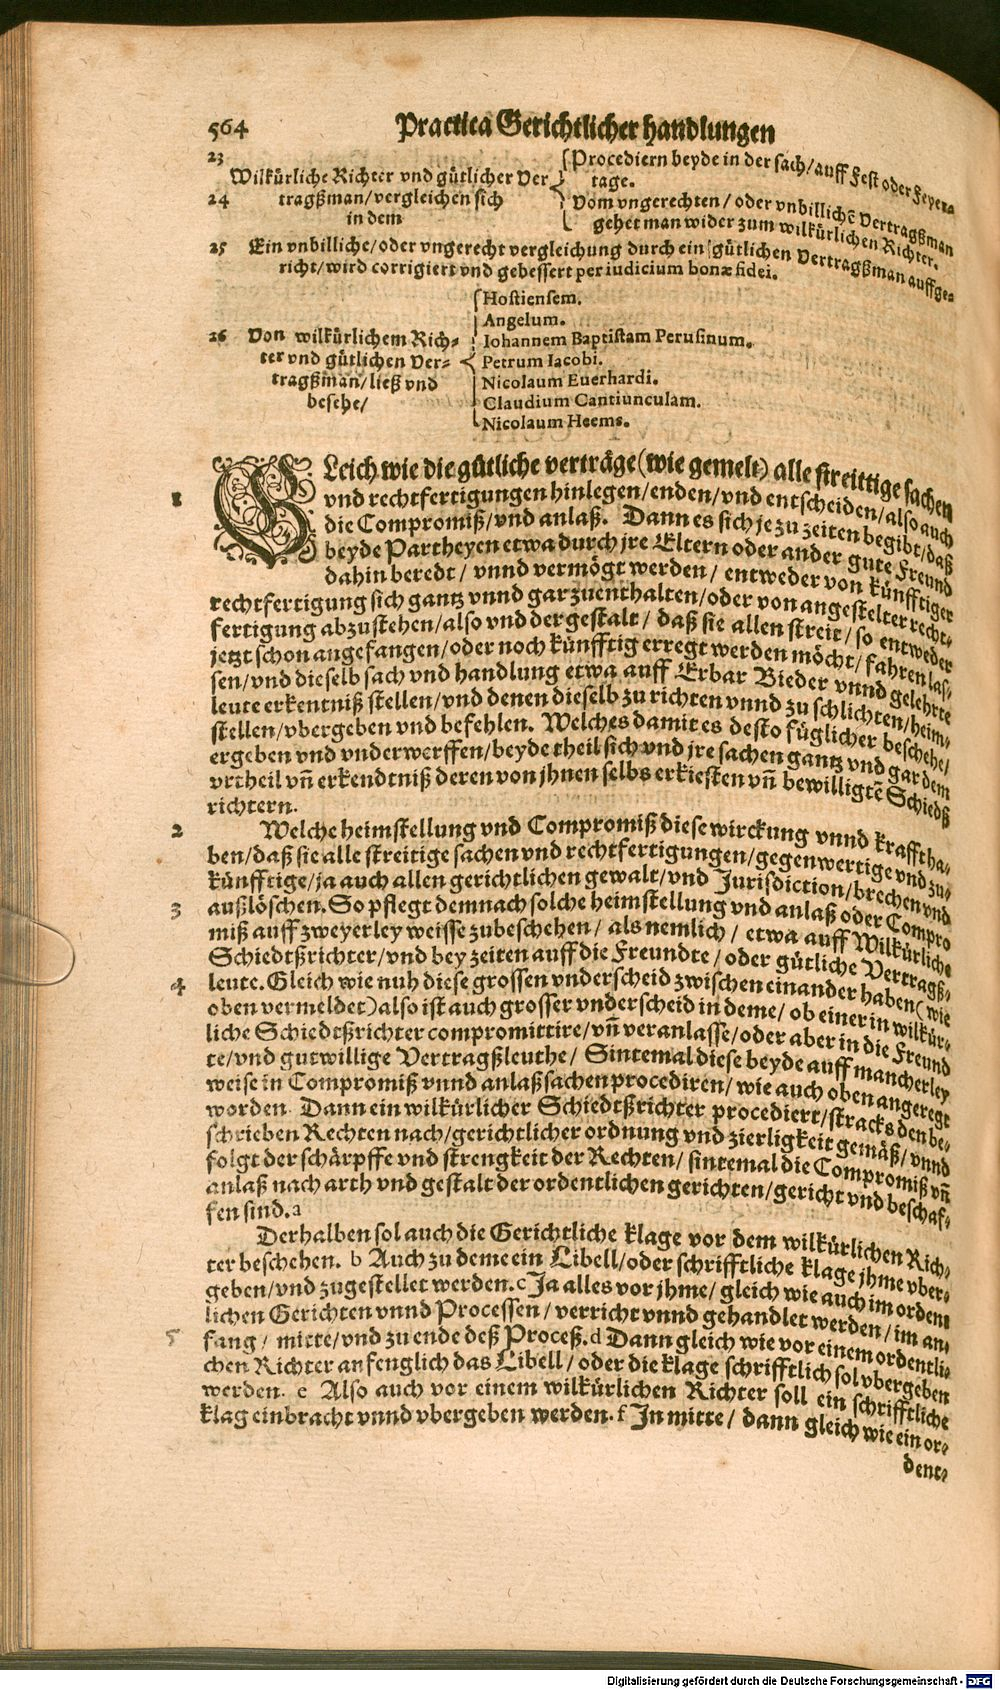 564 Practica Gerichtlicher handlungen
23 Wilkürliche Richter vnd gütlicher Ver
24 tragßman/vergleichen sich
in dem
Procediern beyde in der sach/auff Fest oder Feyer⸗
tage.
Vom vngerechten/oder vnbillichẽ Vertragßman
gehet man wider zum wilkürlichen Richter.
25 Ein vnbilliche/oder vngerecht vergleichung durch ein gütlichen Vertragßman auffge⸗
richt/wird corrigiert vnd gebessert per iudicium bonæ fidei.
26 Von wilkürlichem Rich⸗
ter vnd gütlichen Ver⸗
tragßman/ließ vnd
besehe/
Hostiensem.
Angelum.
Iohannem Baptistam Perusinum.
Petrum Iacobi.
Nicolaum Euerhardi.
Claudium Cantiunculam.
Nicolaum Heems.
1 GLeich wie die gütliche verträge (wie gemelt) alle streittige sachen
vnd rechtfertigungen hinlegen/enden/vnd entscheiden/also auch
die Compromiß/vnd anlaß. Dann es sich je zu zeiten begibt/daß
beyde Partheyen etwa durch jre Eltern oder ander gute Freund
dahin beredt/ vnnd vermögt werden/ entweder von künfftiger
rechtfertigung sich gantz vnnd gar zuenthalten/oder von angestelter recht⸗
fertigung abzustehen/also vnd der gestalt/ daß sie allen streit/ so entweder
jetzt schon angefangen/oder noch künfftig erregt werden möcht/ fahren las⸗
sen/vnd dieselb sach vnd handlung etwa auff Erbar Bieder vnnd gelehrte
leute erkentniß stellen/vnd denen dieselb zu richten vnnd zu schlichten/heim⸗
stellen/vbergeben vnd befehlen. Welches damit es desto füglicher beschehe/
ergeben vnd vnderwerffen/beyde theil sich vnd jre sachen gantz vnd gar dem
vrtheil vñ erkendtniß deren von jhnen selbs erkiesten vñ bewilligtẽ Schiedß
richtern.
2 Welche heimstellung vnd Compromiß diese wirckung vnnd krafft ha⸗
ben/daß sie alle streitige sachen vnd rechtfertigungen/gegenwertige vnd zu⸗
künfftige/ja auch allen gerichtlichen gewalt/vnd Jurisdiction/brechen vnd
3 außlöschen. So pflegt demnach solche heimstellung vnd anlaß oder Compro
miß auff zweyerley weisse zubeschehen/ als nemlich/ etwa auff Wilkürliche
Schiedtßrichter/vnd bey zeiten auff die Freundte/ oder gütliche Vertragß⸗
4 leute. Gleich wie nuh diese grossen vnderscheid zwischen einander haben (wie
oben vermeldet) also ist auch grosser vnderscheid in deme/ ob einer in wilkür⸗
liche Schiedtßrichter compromittire/vñ veranlasse/oder aber in die Freund
te/vnd gutwillige Vertragßleuthe/ Sintemal diese beyde auff mancherley
weise in Compromiß vnnd anlaß sachen procediren/ wie auch oben angeregt
worden. Dann ein wilkürlicher Schiedtßrichter procediert/stracks den be⸗
schrieben Rechten nach/gerichtlicher ordnung vnd zierligkeit gemäß/ vnnd
folgt der schärpffe vnd strengkeit der Rechten/ sintemal die Compromiß vñ
anlaß nach arth vnd gestalt der ordentlichen gerichten/gericht vnd beschaf⸗
fen sind. a
Derhalben sol auch die Gerichtliche klage vor dem wilkürlichen Rich⸗
ter beschehen. b Auch zu deme ein Libell/oder schrifftliche klage jhme vber⸗
geben/vnd zugestellet werden. c Ja alles vor jhme/ gleich wie auch im ordent
lichen Gerichten vnnd Processen/ verricht vnnd gehandlet werden/ im an⸗
5 fang/ mitte/vnd zu ende deß Proceß. d Dann gleich wie vor einem ordentli⸗
chen Richter anfenglich das Libell/ oder die klage schrifftlich sol vbergeben
werden. e Also auch vor einem wilkürlichen Richter soll ein schrifftliche
klag einbracht vnnd vbergeben werden. f In mitte/ dann gleich wie ein or⸗
dent⸗
Digitalisierung gefördert durch die Deutsche Forschungsgemeinschaft - DFG